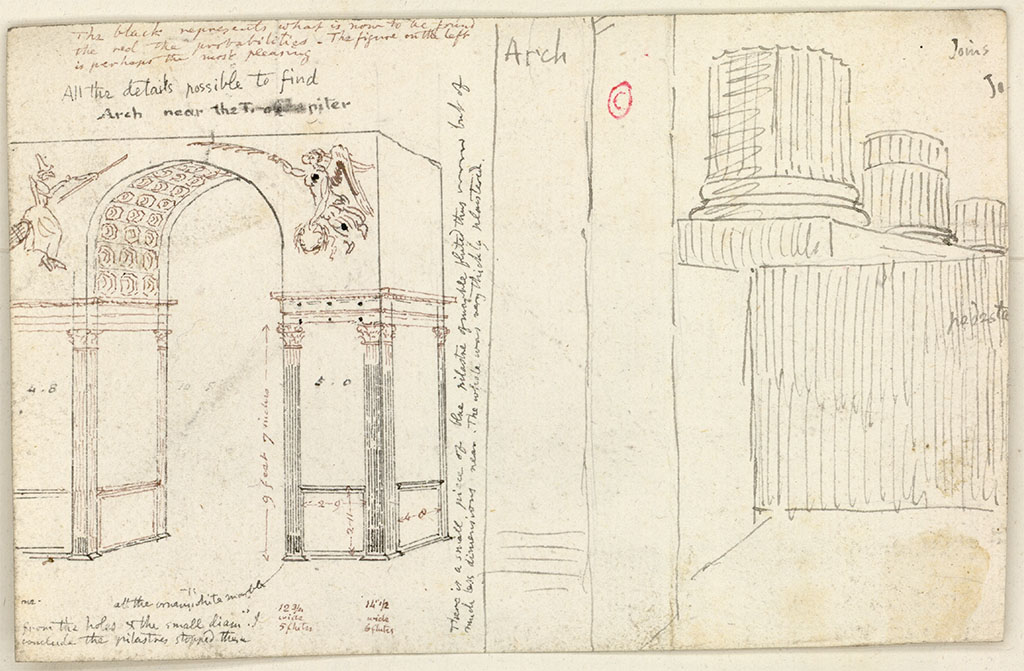 The black represents what is now to be found
the red the probabilities. The figure on the left
is perhaps the most pleasing
All the details possible to find
Arch near the T. of piter
4-8
10 5
4-0
9 feet 7 inches
2-9
2-11
4-8
There is a small piece of blue pilastre of marble fluted this manner but of
much less dimensions near. The whole was very thickly plastered
all the white marble
from the holes & the small diam. I
conclude the pilastres stopped them
12 3/4
wide
5 flutes
14 1/2
wide
6 flutes
Arch
C
Joins
Jo
pedesta